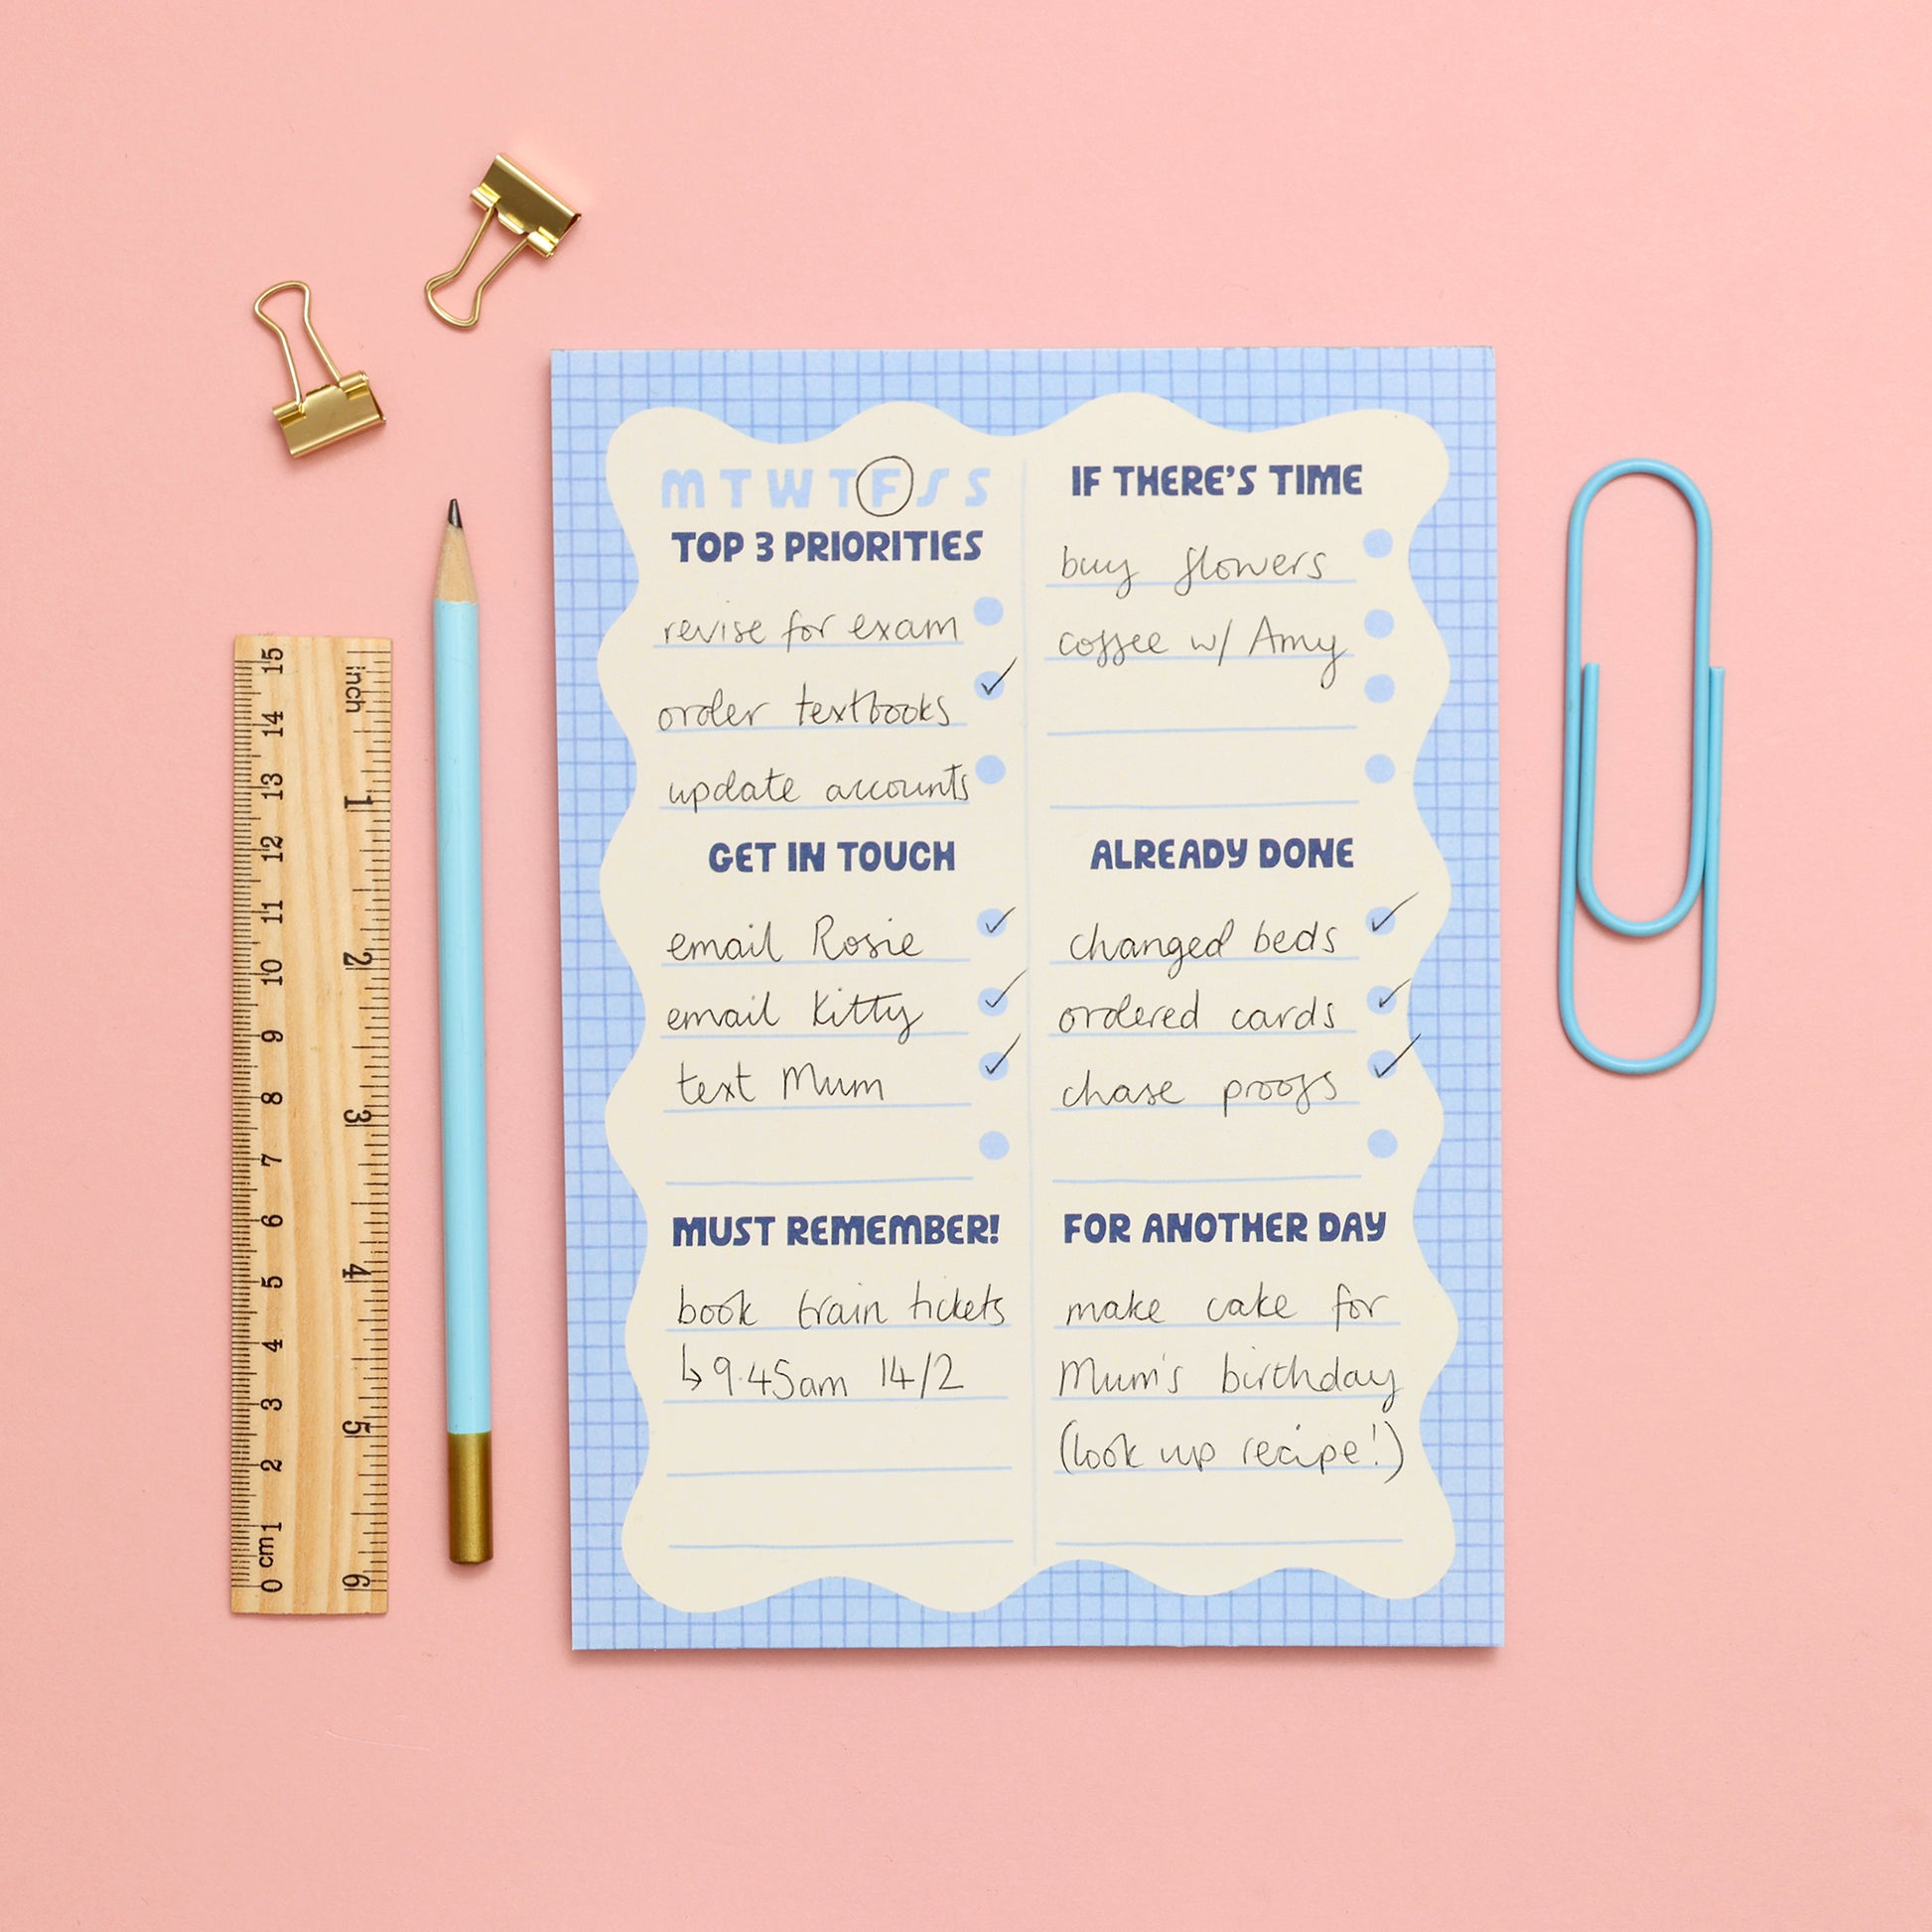 M T W T F S S
TOP 3 PRIORITIES
revise for exam
order textbooks
update accounts
GET IN TOUCH
email Rosie
email Kitty
text Mum
MUST REMEMBER!
book train tickets
↳ 9.45am 14/2
IF THERE'S TIME
buy flowers
coffee w/ Amy
ALREADY DONE
changed beds
ordered cards
chase proofs
FOR ANOTHER DAY
make cake for
Mum's birthday
(look up recipe!)
inch
1
2
3
4
5
6
15
14
13
12
11
10
9
8
7
6
5
4
3
2
1
0 cm